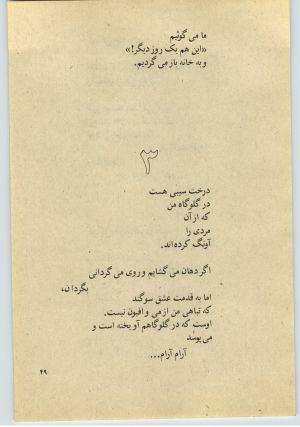 ما می گوئیم
«این هم یک روز دیگر!»
و به خانه باز می گردیم.
۳
درخت سیبی هست
در گلوگاه من
که از آن
مردی را
آونگ کرده‌اند.
اگر دهان می گشایم و روی می گردانی
بگردان،
اما به قدمت عشق سوگند
که تباهی من از می و افیون نیست.
اوست که در گلوگاهم آویخته است و
می پوسد
آرام آرام...
۴۹